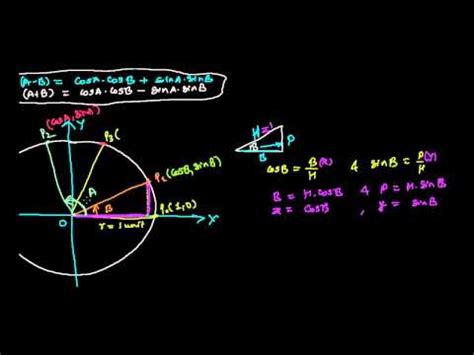 (A-B) = cosA·cosB + sinA·sinB
(A+B) = cosA·cosB - sinA·sinB
(cosA, sinA)
Y
P2
P3(
P1(cosB, sinB)
A
B
O
P0(1,0)
X
r = 1 unit
H=1
P
B
B
cosB = B/H (x) & sinB = P/H (y)
B = H·cosB & P = H·sinB
x = cosB , y = sinB